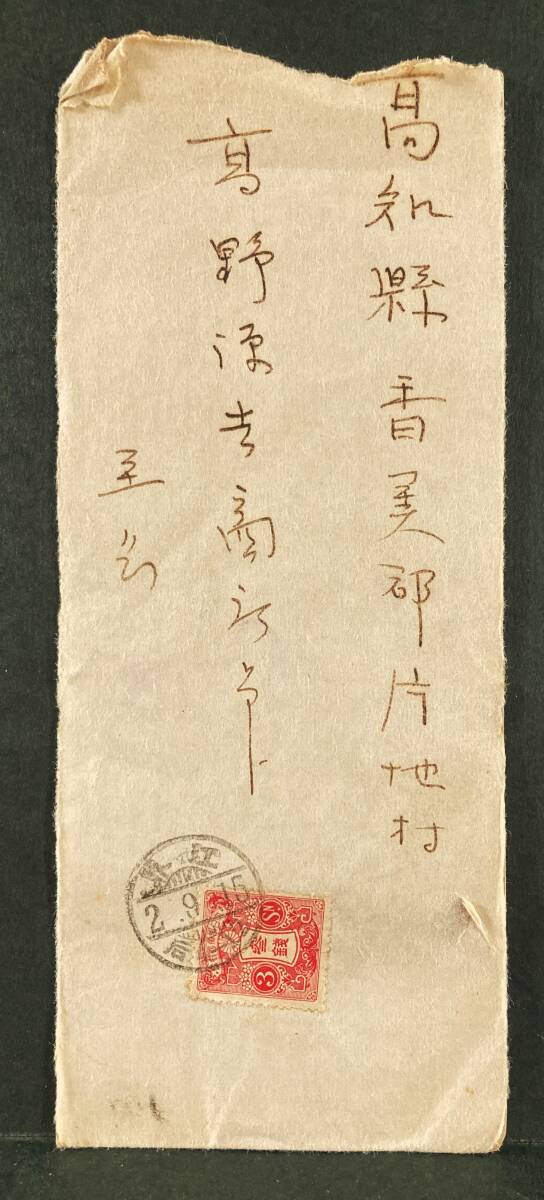 高知縣香美郡片地村
高野源吉商店
至急
2.9.15
参銭
3
3
Sn